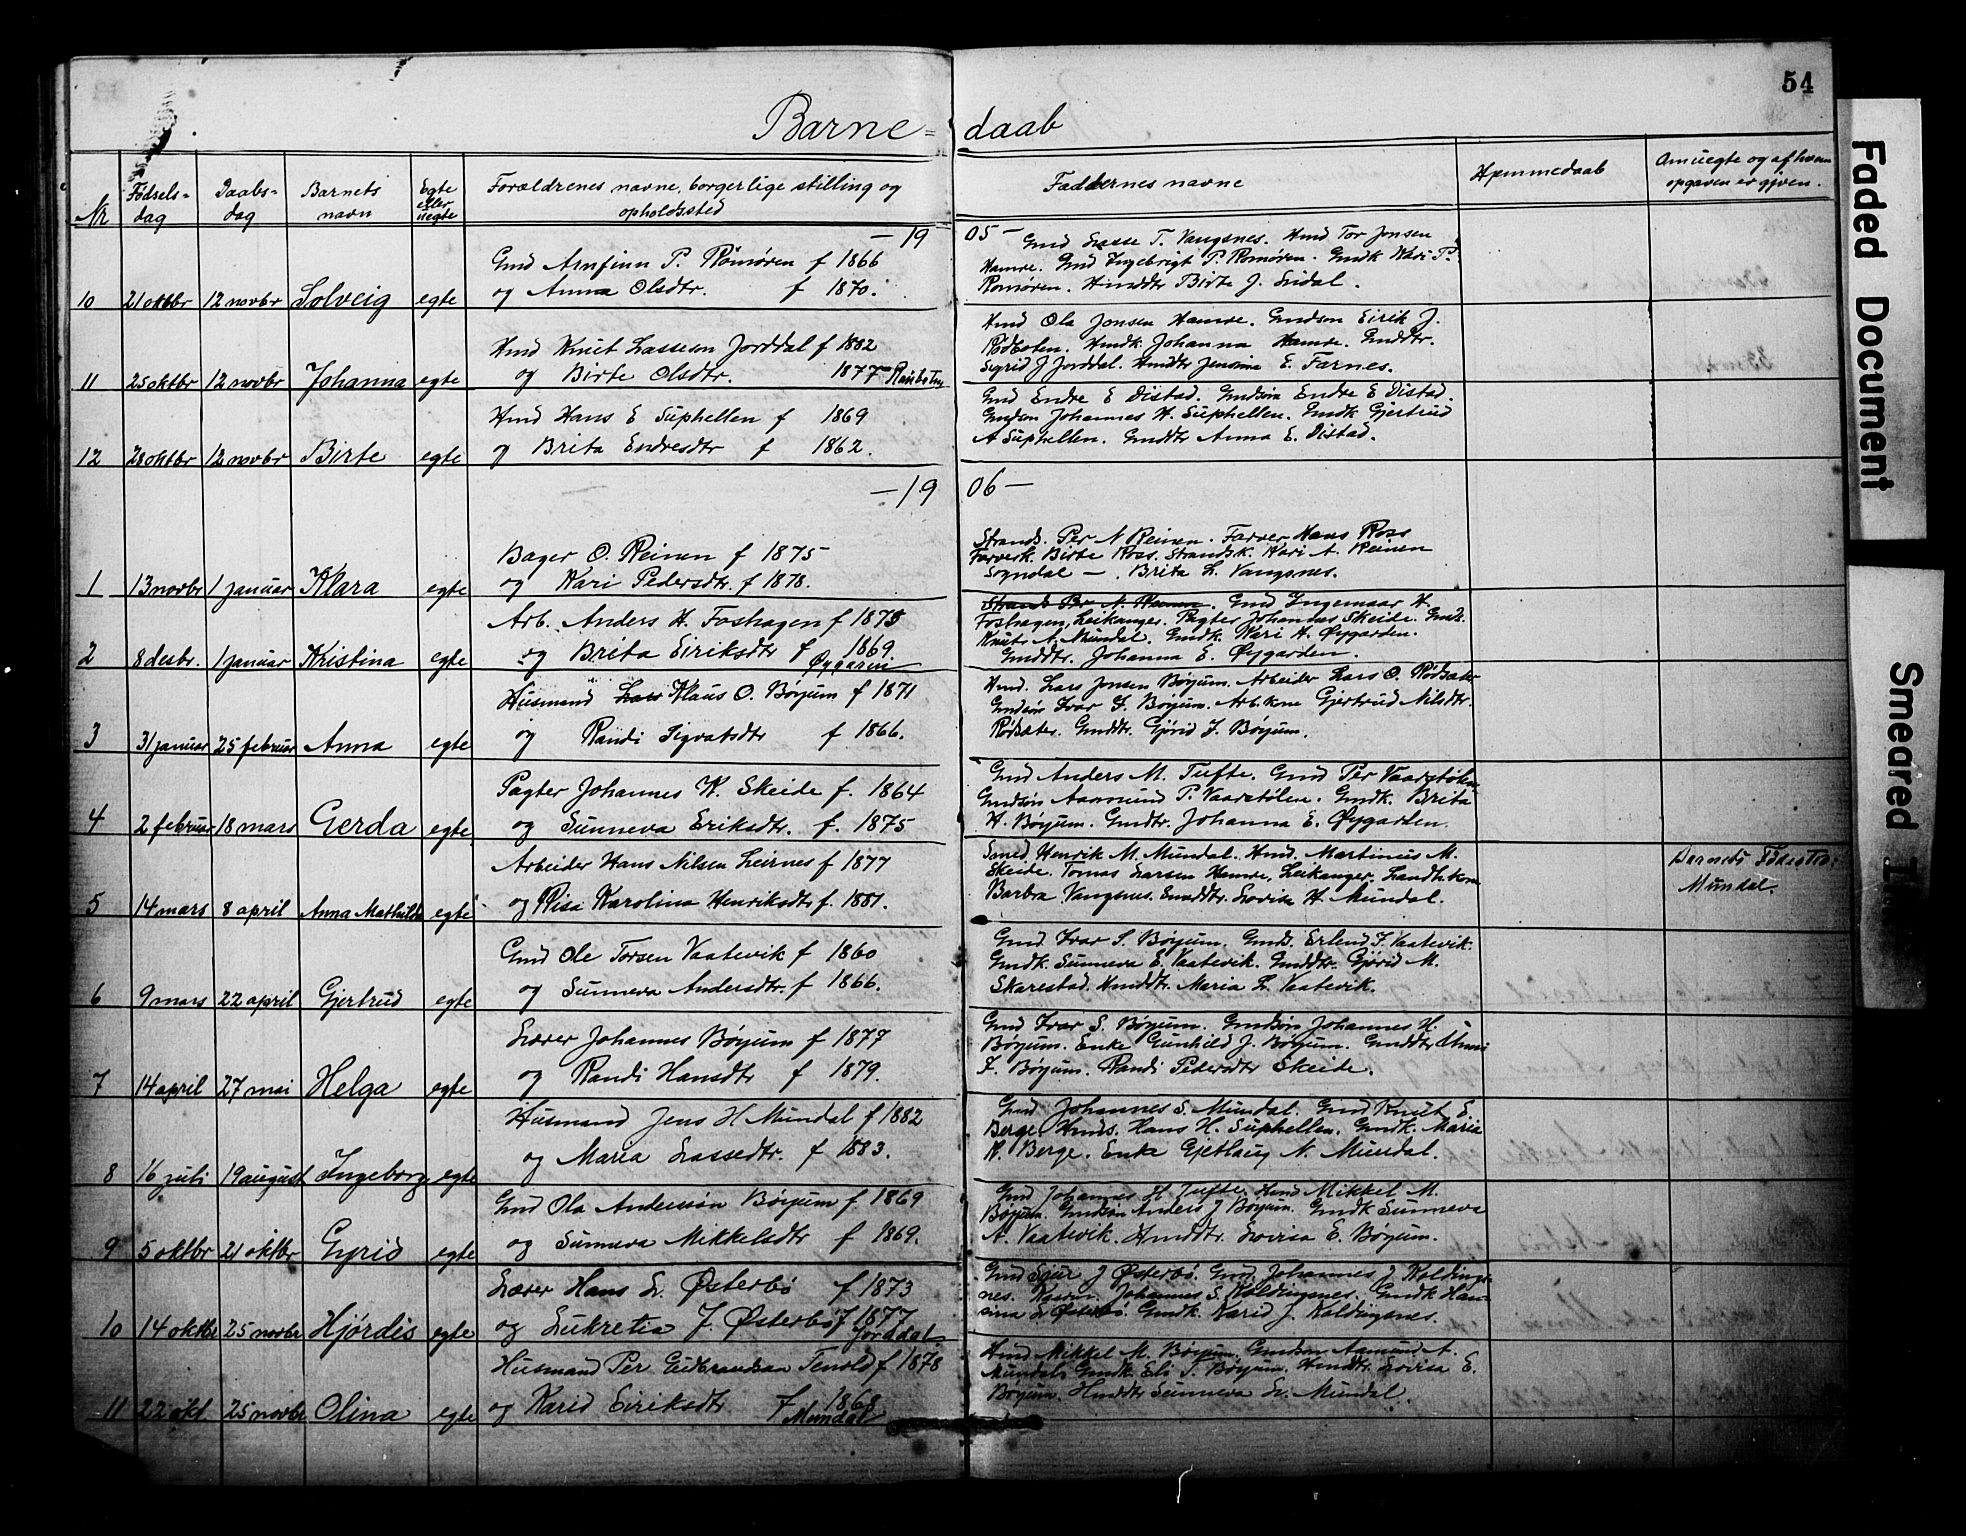 54
Barne= daab
Nr
Fødsels=
dag
Daabs=
dag
Barnets
navn
Egte
eller
uegte
Forældrenes navne, borgerlige stilling og
opholdssted
Faddernes navne
Hjemmedaab
Om uegte og af hvem
opgaven er gjven.
— 19 05 —
10 21 oktbr 12 novbr Solveig egte
Gmd Arnfinn P. Romøren f 1866
og Anna Olsdtr. f 1870.
Gmd Lasse T. Vangsnes. Hmd Tor Jonsen
Hamre. Gmd Ingebrigt P. Romøren. Gmdk Kari P.
Romøren. Hmddtr Birte J. Lidal.
11 25 oktbr 12 novbr Johanna egte
Hmd Knut Lasseson Jorddal f 1882
og Birte Olsdtr. 1877
Hmd Ola Jonsen Hamre. Gmdson Eirik J.
Hmdk. Johanna Hamre. Gmddtr.
Sigrid J Jorddal. Hmdtr Jensina E. Farnes.
12 28 oktbr 12 novbr Birte egte
Hmd Hans E Suphellen f 1869
og Brita Endresdtr f 1862.
Gmd Endre E Distad. Gmdsøn Endre E Distad.
Gmdson Johannes H. Suphellen. Gmdk Gjertrud
A Suphellen. Gmddtr Anna E. Distad.
— 19 06 —
1 13 novbr 1 januar Klara egte
Bager O. Reinen f 1875
og Kari Pedersdtr. f 1878.
Strands. Per N Reinen. Farver Hans Ross
Farverk. Birte Ross. Strandsk. Kari A. Reinen
Sogndal —. Brita L. Vangsnes.
2 8 desbr. 1 januar Kristina egte
Arb. Anders H. Foshagen f 1875
og Brita Eiriksdtr f 1869.
Øygaren
Strands Per N. Reinen. Gmd Ingemaar H.
Foshagen, Leikanger. Pagter Johannes Skeide. Gmds.
Knut A. Mundal. Gmdk. Kari H. Øygarden.
Gmddtr. Johanna E. Øygarden.
3 31 januar 25 februar Anna egte
Husmand Lars Klaus O. Bøyum f 1871
og Randi Sigvatsdtr f 1866.
Hmd. Lars Jonsen Bøyum. Arbeider Lars O. Rødsæter
Gmdsøn Ivar S. Bøyum. Arb.kone Gjertrud Nilsdtr.
Rødsæter. Gmddtr. Gjørid I. Bøyum.
4 2 februar 18 mars Gerda egte
Pagter Johannes K. Skeide f. 1864
og Sunneva Eriksdtr. f. 1875
Gmd Anders M. Tufte. Gmd Per Vaarstølen
Gmdsøn Aamund P. Vaarstølen. Gmdk. Brita
H. Bøyum. Gmdtr. Johanna E. Øygarden.
5 14 mars 8 april Anna Mathilde egte
Arbeider Hans Nilsen Leirnes f 1877
og Risa Karolina Henriksdtr f. 1881.
Smed Henrik M. Mundal. Hmd. Martinus M.
Skeide. Tomas Larsen Hamre, Leikanger. Landh.kone
Barbra Vangsnes. Smeddtr. Lovisa H. Mundal.
Barnets Fødested:
Mundal.
6 9 mars 22 april Gjertrud egte
Gmd Ole Torsen Vaatevik f 1860
og Sunneva Andersdtr. f 1866.
Gmd. Ivar S. Bøyum. Gmds. Erlend I. Vaatevik.
Gmdk. Sunneva E. Vaatevik. Gmddtr. Gjørid M.
Skarestad. Hmddtr. Maria L. Vaatevik.
7 14 april 27 mai Helga egte
Lærer Johannes Bøyum f 1877
og Randi Hansdtr f 1879.
Gmd Ivar S. Bøyum. Gmdsøn Johannes H.
Bøyum. Enke Gunhild J. Bøyum. Gmddtr
I. Bøyum. Randi Pedersdtr Skeide.
8 16 juli 19 august Ingeborg egte
Husmand Jens H Mundal f 1882
og Maria Lassedtr. f 1883.
Gmd Johannes S. Mundal. Gmd Knut E.
Berge. Hmds. Hans H. Suphellen. Gmdk. Maria
K. Berge. Enke Gjetlaug N. Mundal.
9 5 oktbr 21 oktbr Gyrid egte
Gmd Ola Anderssøn Bøyum f 1869
og Sunneva Mikkelsdtr f 1869.
Gmd Johannes H Tufte. Hmd Mikkel M.
Bøyum. Gmdsøn Anders J Bøyum. Gmdk Sunneva
A. Vaatevik. Hmddtr. Lovisa E. Bøyum.
10 14 oktbr 25 novbr Hjørdis egte
Lærer Hans L. Østerbø f 1873
og Lukretia J. Østerbø f 1877
Jorddal
Gmd Sjur J Østerbø. Gmd. Johannes J Koldings=
nes. Johannes S. Koldingsnes. Gmdk Han=
sina L Østerbø. Gmdk. Karid J. Koldingsnes.
11 22 okt 25 novbr Olina egte
Husmand Per Gudbrandsen Tenold f 1878
og Karid Eiriksdtr f 1868
Mundal
Hmd Mikkel M. Bøyum. Gmdson Aamund A.
Mundal. Gmdk Eli S. Bøyum. Hmddtr. Lovisa E.
Bøyum. Hmddtr Sunneva L. Mundal.
Faded Document
Smeared